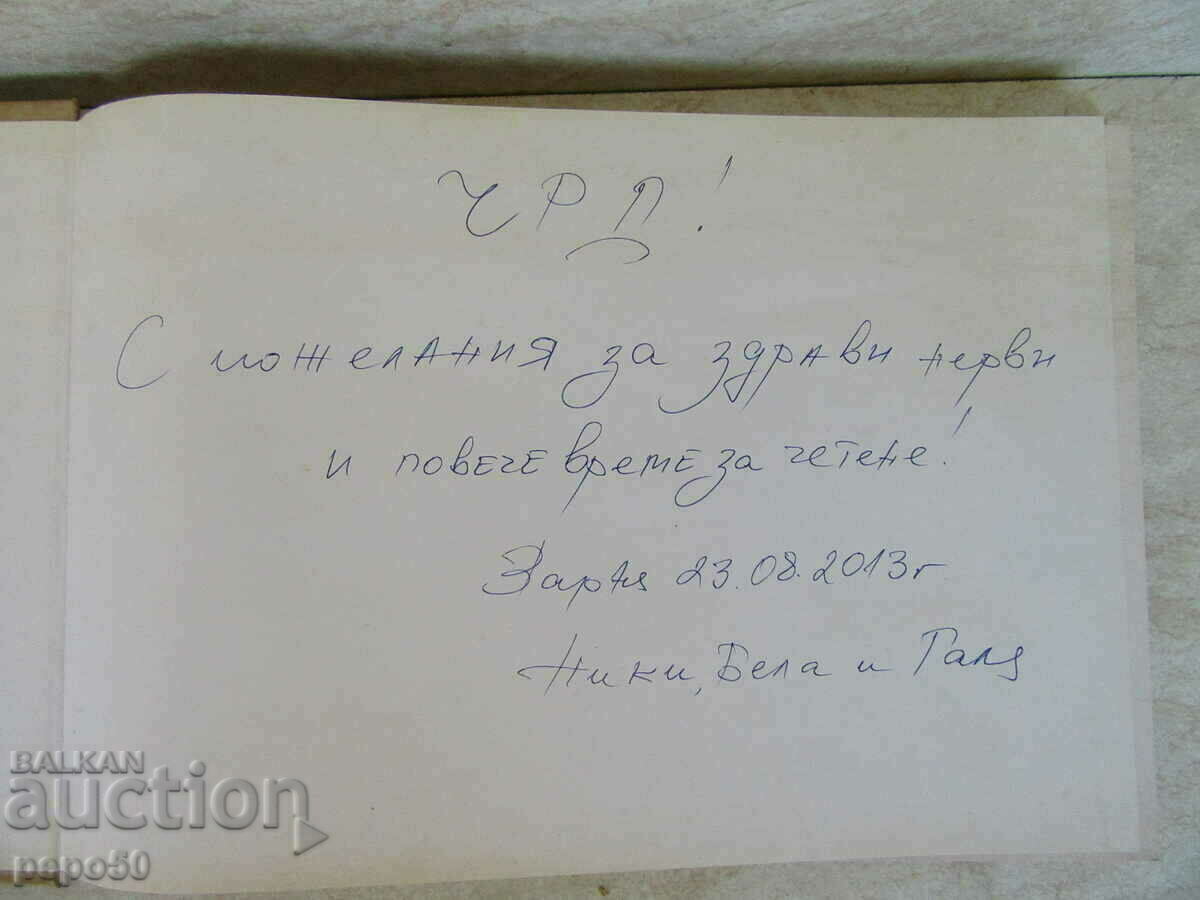 ЧРД!
С пожелания за здрави нерви
и повече време за четене!
Варна 23.08.2013г
Ники, Бела и Галя
BALKAN
auction
pepo50